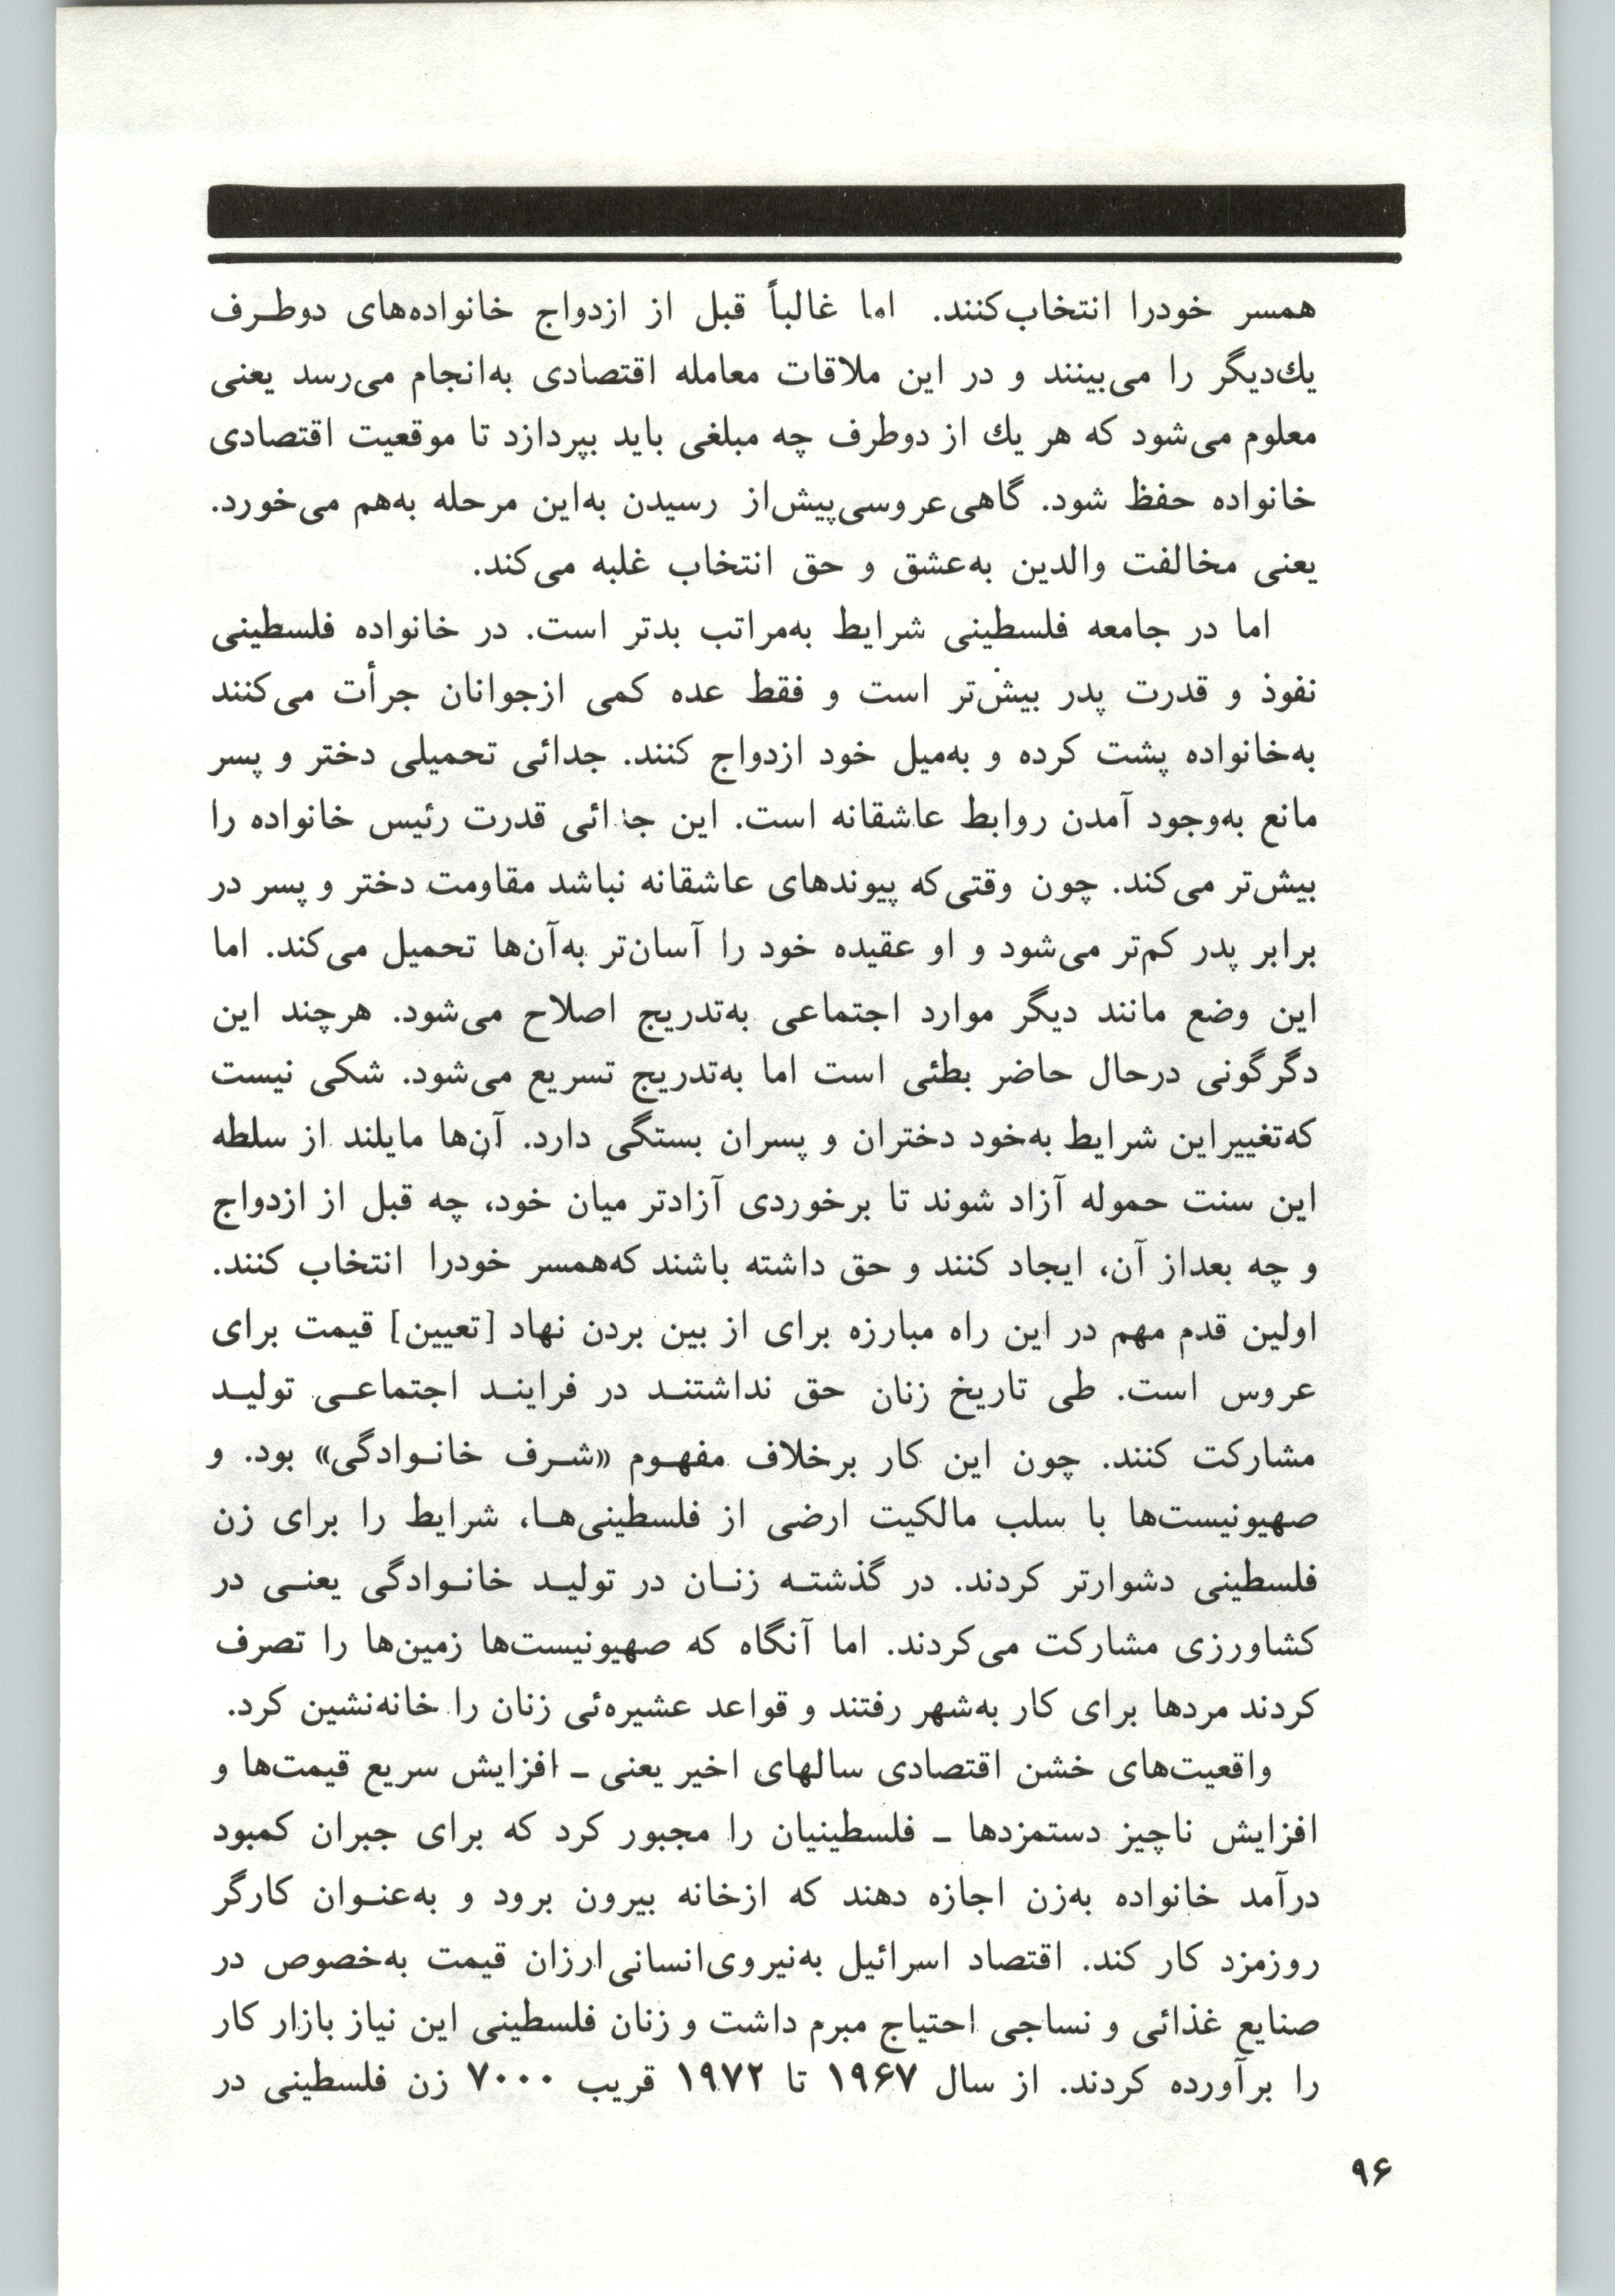 همسر خودرا انتخاب‌کنند. اما غالباً قبل از ازدواج خانواده‌های دوطرف
یك‌دیگر را می‌بینند و در این ملاقات معامله اقتصادی به‌انجام می‌رسد یعنی
معلوم می‌شود که هر یك از دوطرف چه مبلغی باید بپردازد تا موقعیت اقتصادی
خانواده حفظ شود. گاهی‌عروسی‌پیش‌از رسیدن به‌این مرحله به‌هم می‌خورد.
یعنی مخالفت والدین به‌عشق و حق انتخاب غلبه می‌کند.
اما در جامعه فلسطینی شرایط به‌مراتب بدتر است. در خانواده فلسطینی
نفوذ و قدرت پدر بیش‌تر است و فقط عده کمی ازجوانان جرأت می‌کنند
به‌خانواده پشت کرده و به‌میل خود ازدواج کنند. جدائی تحمیلی دختر و پسر
مانع به‌وجود آمدن روابط عاشقانه است. این جدائی قدرت رئیس خانواده را
بیش‌تر می‌کند. چون وقتی‌که پیوندهای عاشقانه نباشد مقاومت دختر و پسر در
برابر پدر کم‌تر می‌شود و او عقیده خود را آسان‌تر به‌آن‌ها تحمیل می‌کند. اما
این وضع مانند دیگر موارد اجتماعی به‌تدریج اصلاح می‌شود. هرچند این
دگرگونی درحال حاضر بطئی است اما به‌تدریج تسریع می‌شود. شکی نیست
که‌تغییراین شرایط به‌خود دختران و پسران بستگی دارد. آن‌ها مایلند از سلطه
این سنت حموله آزاد شوند تا برخوردی آزادتر میان خود، چه قبل از ازدواج
و چه بعداز آن، ایجاد کنند و حق داشته باشند که‌همسر خودرا انتخاب کنند.
اولین قدم مهم در این راه مبارزه برای از بین بردن نهاد [تعیین] قیمت برای
عروس است. طی تاریخ زنان حق نداشتند در فرایند اجتماعی تولید
مشارکت کنند. چون این کار برخلاف مفهوم «شرف خانوادگی» بود. و
صهیونیست‌ها با سلب مالکیت ارضی از فلسطینی‌ها، شرایط را برای زن
فلسطینی دشوارتر کردند. در گذشته زنان در تولید خانوادگی یعنی در
کشاورزی مشارکت می‌کردند. اما آنگاه که صهیونیست‌ها زمین‌ها را تصرف
کردند مردها برای کار به‌شهر رفتند و قواعد عشیره‌ئی زنان را خانه‌نشین کرد.
واقعیت‌های خشن اقتصادی سالهای اخیر یعنی ـ افزایش سریع قیمت‌ها و
افزایش ناچیز دستمزدها ـ فلسطینیان را مجبور کرد که برای جبران کمبود
درآمد خانواده به‌زن اجازه دهند که ازخانه بیرون برود و به‌عنوان کارگر
روزمزد کار کند. اقتصاد اسرائیل به‌نیروی‌انسانی‌ارزان قیمت به‌خصوص در
صنایع غذائی و نساجی احتیاج مبرم داشت و زنان فلسطینی این نیاز بازار کار
را برآورده کردند. از سال ۱۹۶۷ تا ۱۹۷۲ قریب ۷۰۰۰ زن فلسطینی در
۹۶